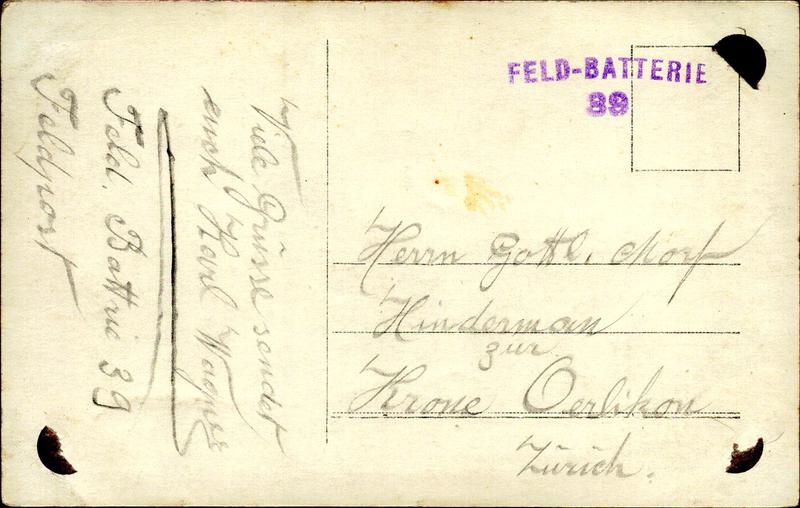 Viele Grüsse sendet
euch Karl Wagner
Feld. Battrie 39
Feldpost
FELD-BATTERIE
39
Herrn Gottl. Morf
Hinderman
zur
Krone Oerlikon
Zürich.